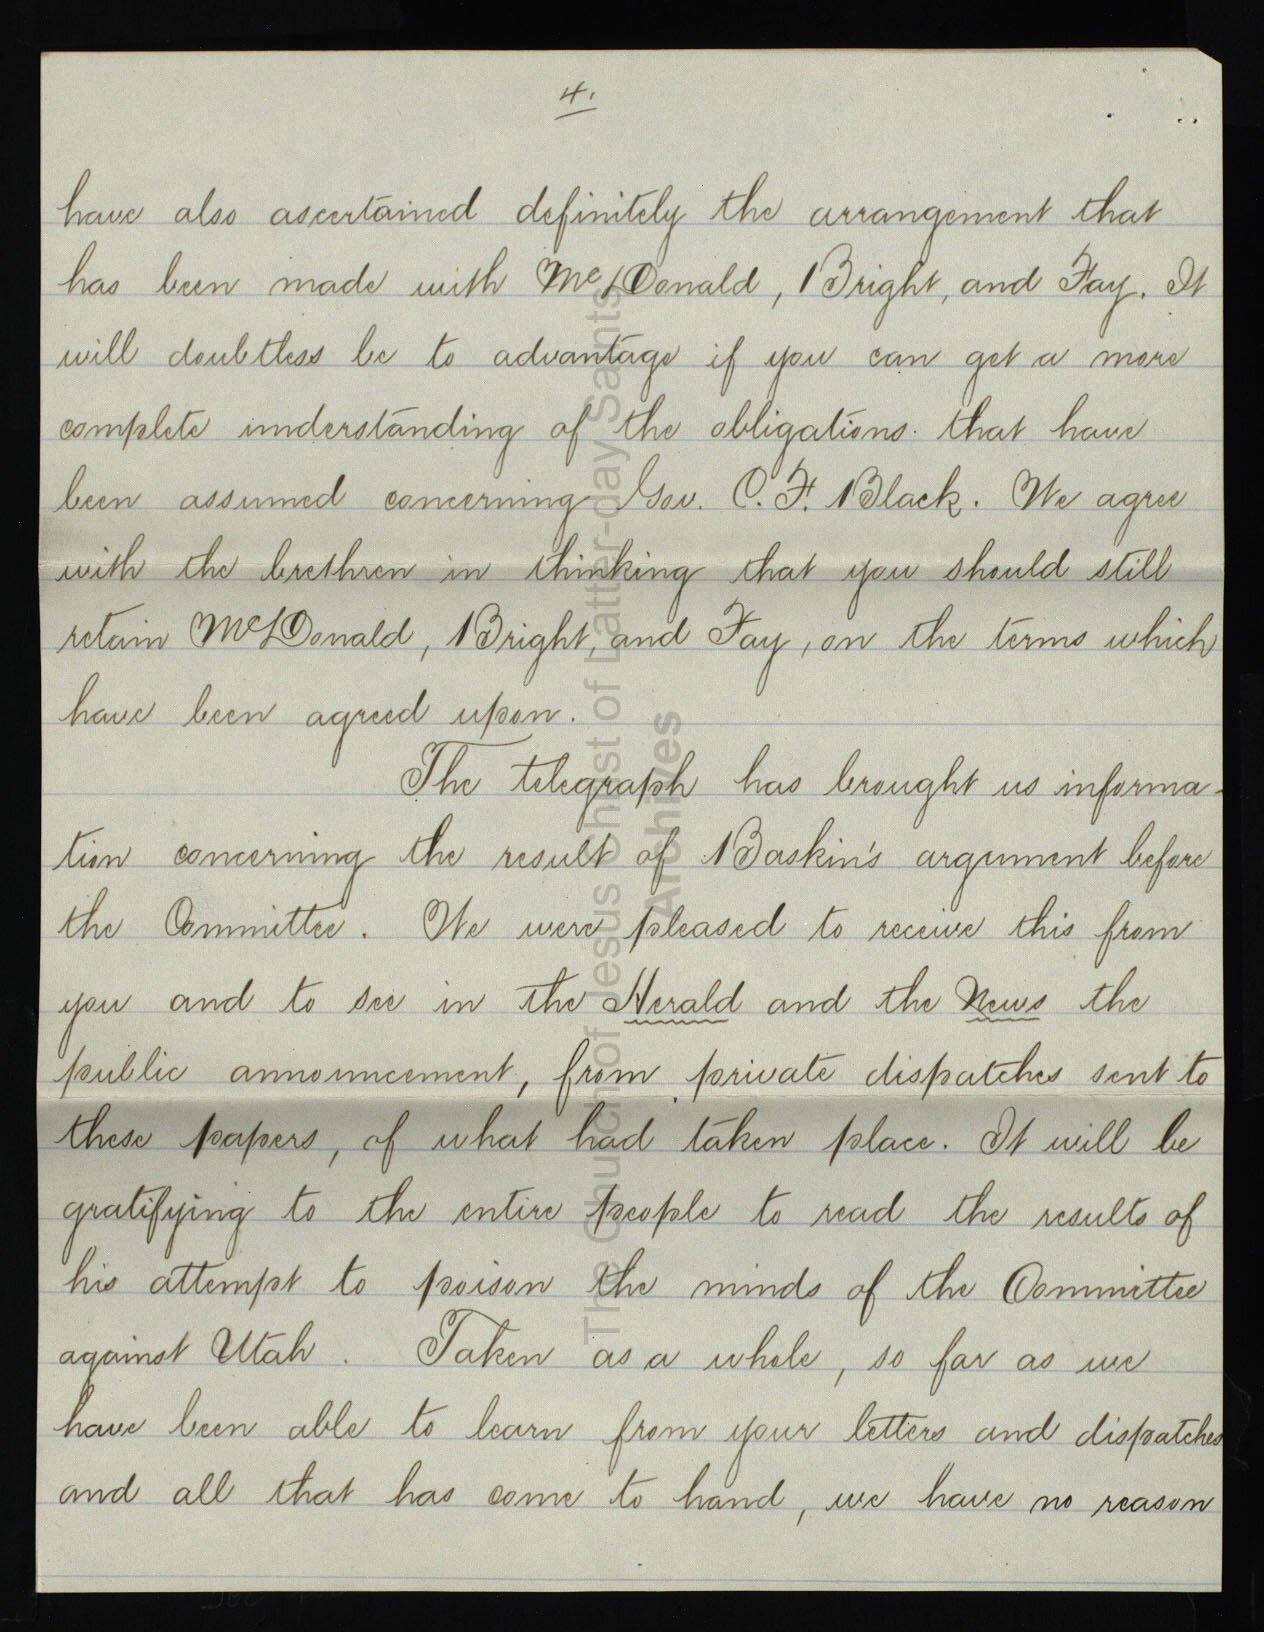 4.
have also ascertained definitely the arrangement that
has been made with McDonald, Bright, and Fay. It
will doubtless be to advantage if you can get a more
complete understanding of the obligations that have
been assumed concerning Gov. C. F. Black. We agree
with the brethren in thinking that you should still
retain McDonald, Bright, and Fay, on the terms which
have been agreed upon.
The telegraph has brought us informa-
tion concerning the result of Baskin's argument before
the Committee. We were pleased to receive this from
you and to see in the Herald and the News the
public announcement, from private dispatches sent to
these papers, of what had taken place. It will be
gratifying to the entire people to read the results of
his attempt to poison the minds of the Committee
against Utah. Taken as a whole, so far as we
have been able to learn from your letters and dispatches
and all that has come to hand, we have no reason
The Church of Jesus Christ of Latter-day Saints
Archives